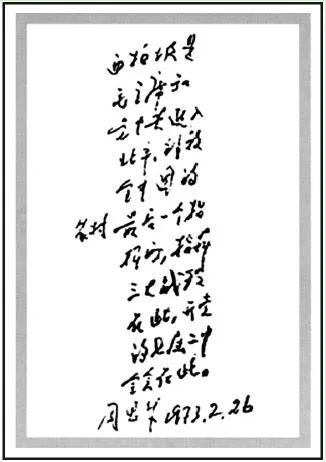 西柏坡是
毛主席和
党中央进入
北平,解放
全中国的
农村 最后一个指
挥所,指挥
三大战役
在此,开党
的七届二中
全会在此。
周恩来 1973.2.26